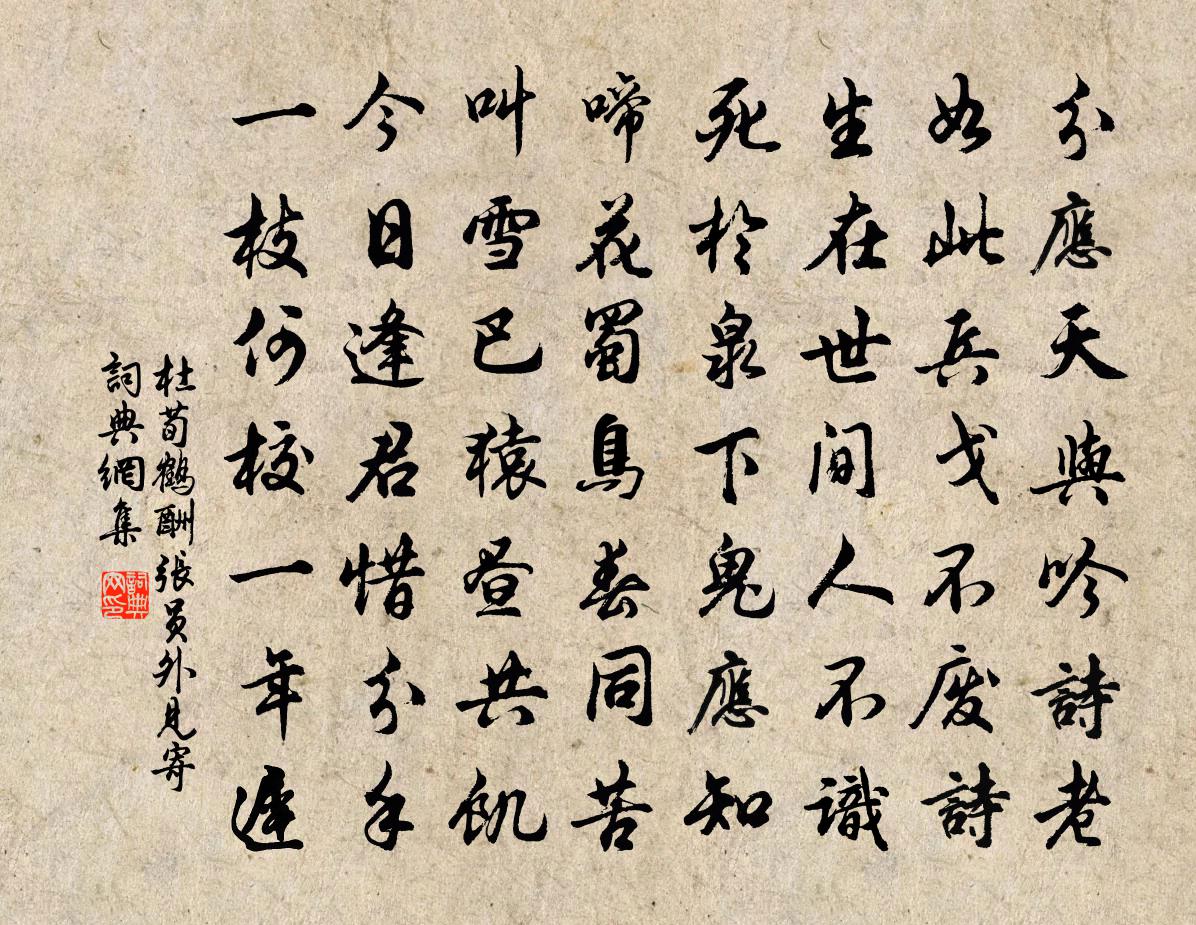 分應天與吟詩老
如此兵戈不廢詩
生在世間人不識
死於泉下鬼應知
啼花蜀鳥春同苦
叫雪巴猿晝共飢
今日逢君惜分手
一枝何校一年遲
杜荀鶴酬張員外見寄
詞典網集
詞典
网印